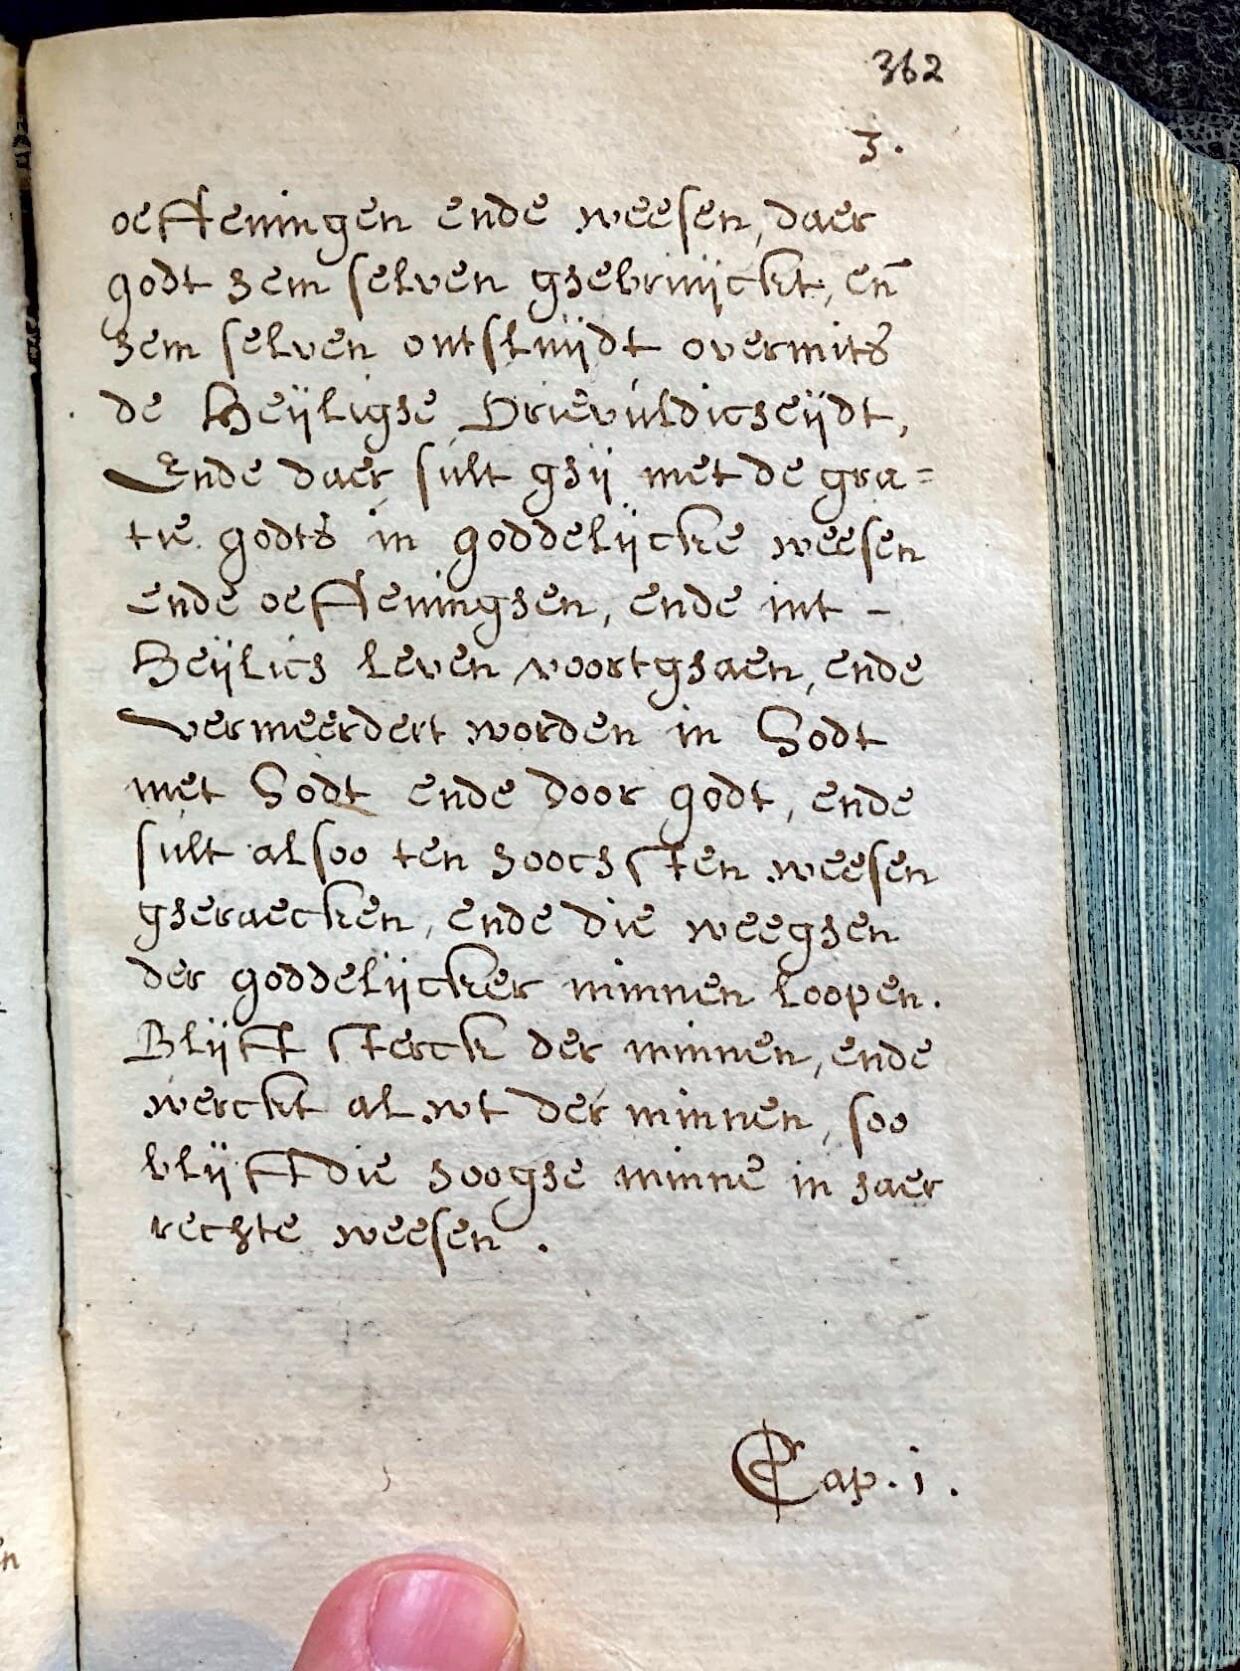 362
3.
oeffeningen ende weesen, daer
godt hem selven ghebruijckt, en̄
hem selven ontsluijdt overmits
de Heijlighe Drievúldicheijdt,
Ende daer sult ghij met de gra=
tie godts in goddelijcke weesen
ende oeffeninghen, ende int –
Heijlich leven voortghaen, ende
vermeerdert worden in Godt
met Godt ende door godt, ende
sult alsoo ten hoochsten weesen
gheraecken, ende die weeghen
der goddelijcker minnen loopen.
Blijft sterck der minnen, ende
werckt al wt der minnen, soo
blijft die hooghe minne in haer
rechte weesen.
Cap. i.